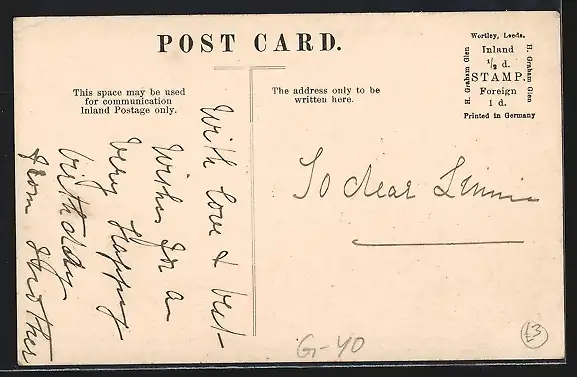 POST CARD.
Wortley, Leeds.
H. Graham Glen
Inland
½ d.
STAMP.
Foreign
1 d.
H. Graham Glen
Printed in Germany
This space may be used
for communication
Inland Postage only.
The address only to be
written here.
With love & best
Wishes for a
Very Happy
birthday
from Mother
To dear Linnie
G-40
£3